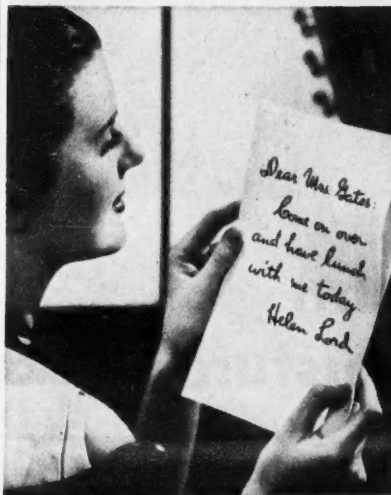 Dear Mrs. Gates:
Come on over
and have lunch
with me today
Helen Lord